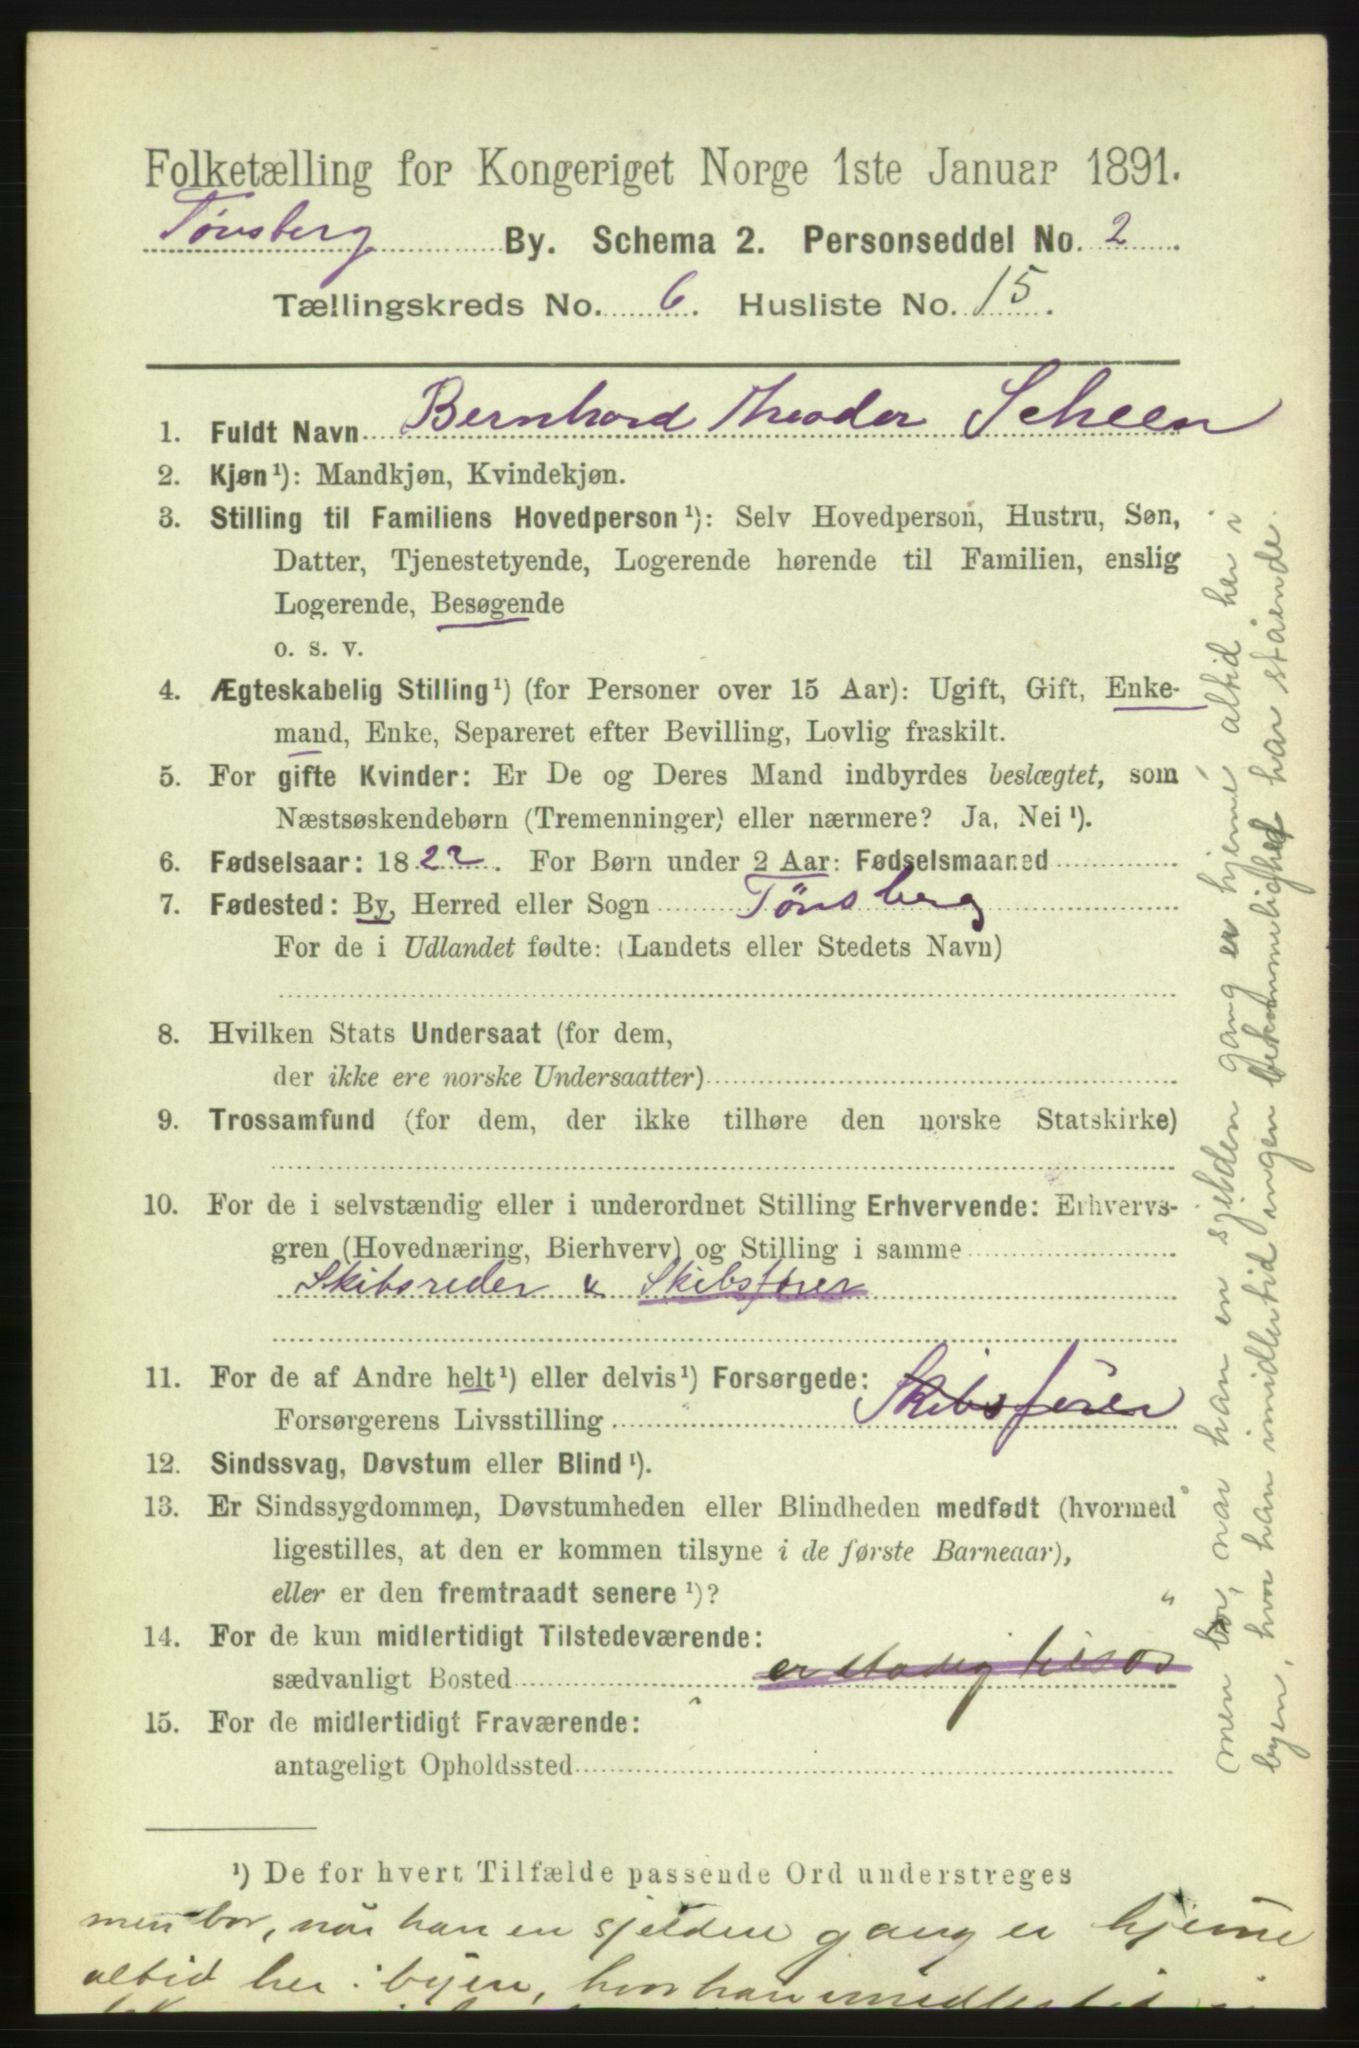 Folketælling for Kongeriget Norge 1ste Januar 1891.
Tønsberg By. Schema 2. Personseddel No. 2
Tællingskreds No. 6. Husliste No. 15.
1. Fuldt Navn Bernhard Theodor Scheen
2. Kjøn¹): Mandkjøn, Kvindekjøn.
3. Stilling til Familiens Hovedperson¹): Selv Hovedperson, Hustru, Søn,
Datter, Tjenestetyende, Logerende hørende til Familien, enslig
Logerende, Besøgende
o. s. v.
4. Ægteskabelig Stilling¹) (for Personer over 15 Aar): Ugift, Gift, Enke-
mand, Enke, Separeret efter Bevilling, Lovlig fraskilt.
5. For gifte Kvinder: Er De og Deres Mand indbyrdes beslægtet, som
Næstsøskendebørn (Tremenninger) eller nærmere? Ja, Nei¹).
6. Fødselsaar: 1822. For Børn under 2 Aar: Fødselsmaaned
7. Fødested: By, Herred eller Sogn Tönsberg
For de i Udlandet fødte: (Landets eller Stedets Navn)
8. Hvilken Stats Undersaat (for dem,
der ikke ere norske Undersaatter)
9. Trossamfund (for dem, der ikke tilhøre den norske Statskirke)
10. For de i selvstændig eller i underordnet Stilling Erhvervende: Erhvervs-
gren (Hovednæring, Bierhverv) og Stilling i samme
Skibsreder & Skibsfører
11. For de af Andre helt¹) eller delvis¹) Forsørgede:
Forsørgerens Livsstilling Skibsförer
12. Sindssvag, Døvstum eller Blind¹).
13. Er Sindssygdommen, Døvstumheden eller Blindheden medfødt (hvormed
ligestilles, at den er kommen tilsyne i de første Barneaar),
eller er den fremtraadt senere¹)? "
14. For de kun midlertidigt Tilstedeværende:
sædvanligt Bosted er stadig tilsøs
15. For de midlertidigt Fraværende:
antageligt Opholdssted
¹) De for hvert Tilfælde passende Ord understreges
men bor, når han en sjelden gang er hjemme
altid her i byen, hvor han imidlertid
men bor, når han en sjelden gang er hjemme altid her i
byen, hvor han imidlertid ingen bekvemmelighed har stående.